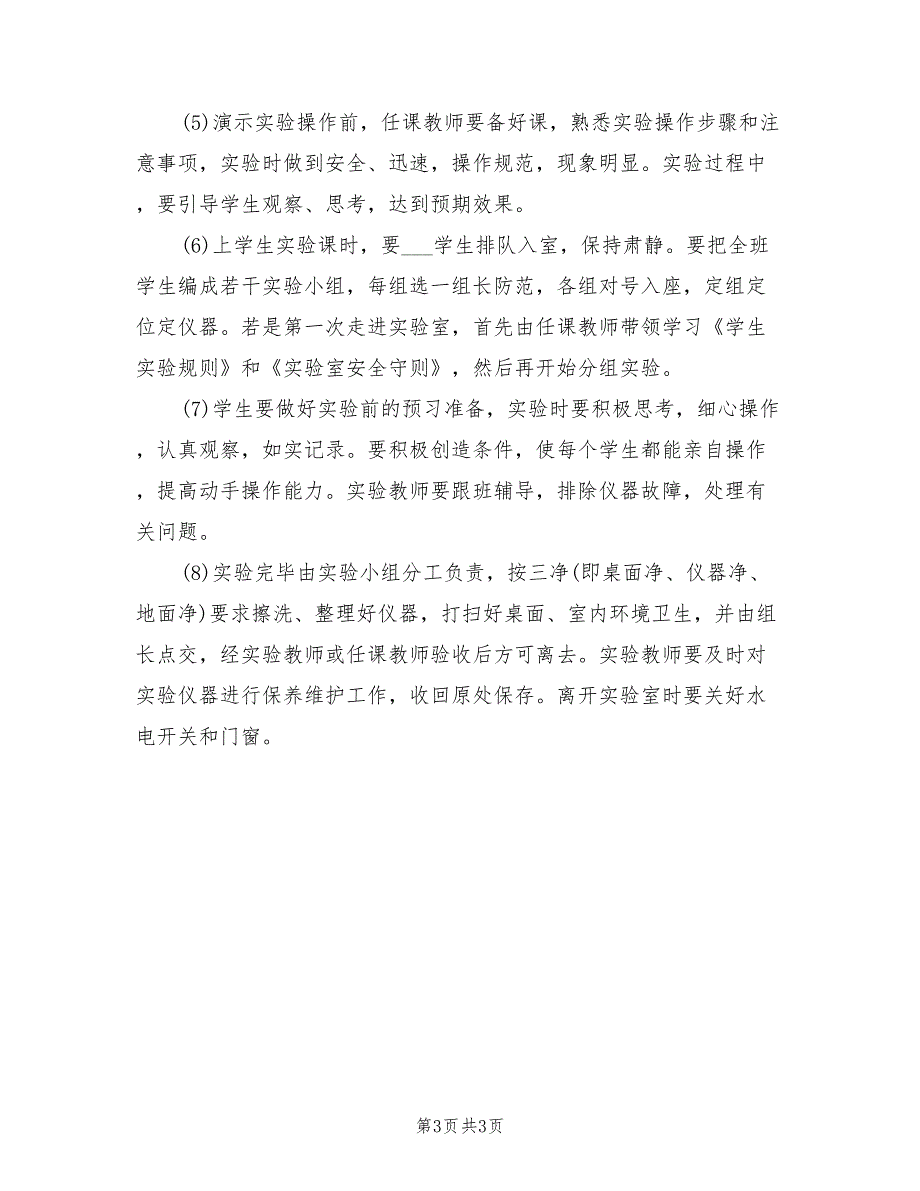 (5)演示实验操作前，任课教师要备好课，熟悉实验操作步骤和注
意事项，实验时做到安全、迅速，操作规范，现象明显。实验过程中
，要引导学生观察、思考，达到预期效果。
(6)上学生实验课时，要___学生排队入室，保持肃静。要把全班
学生编成若干实验小组，每组选一组长防范，各组对号入座，定组定
位定仪器。若是第一次走进实验室，首先由任课教师带领学习《学生
实验规则》和《实验室安全守则》，然后再开始分组实验。
(7)学生要做好实验前的预习准备，实验时要积极思考，细心操作
，认真观察，如实记录。要积极创造条件，使每个学生都能亲自操作
，提高动手操作能力。实验教师要跟班辅导，排除仪器故障，处理有
关问题。
(8)实验完毕由实验小组分工负责，按三净(即桌面净、仪器净、
地面净)要求擦洗、整理好仪器，打扫好桌面、室内环境卫生，并由组
长点交，经实验教师或任课教师验收后方可离去。实验教师要及时对
实验仪器进行保养维护工作，收回原处保存。离开实验室时要关好水
电开关和门窗。
第3页 共3页